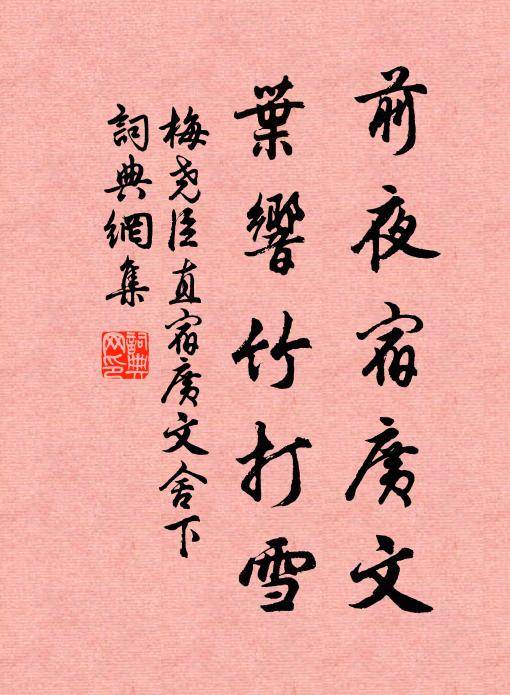 前夜宿廣文
葉響竹打雪
梅堯臣直宿廣文舍下
詞典網集
詞典
网印